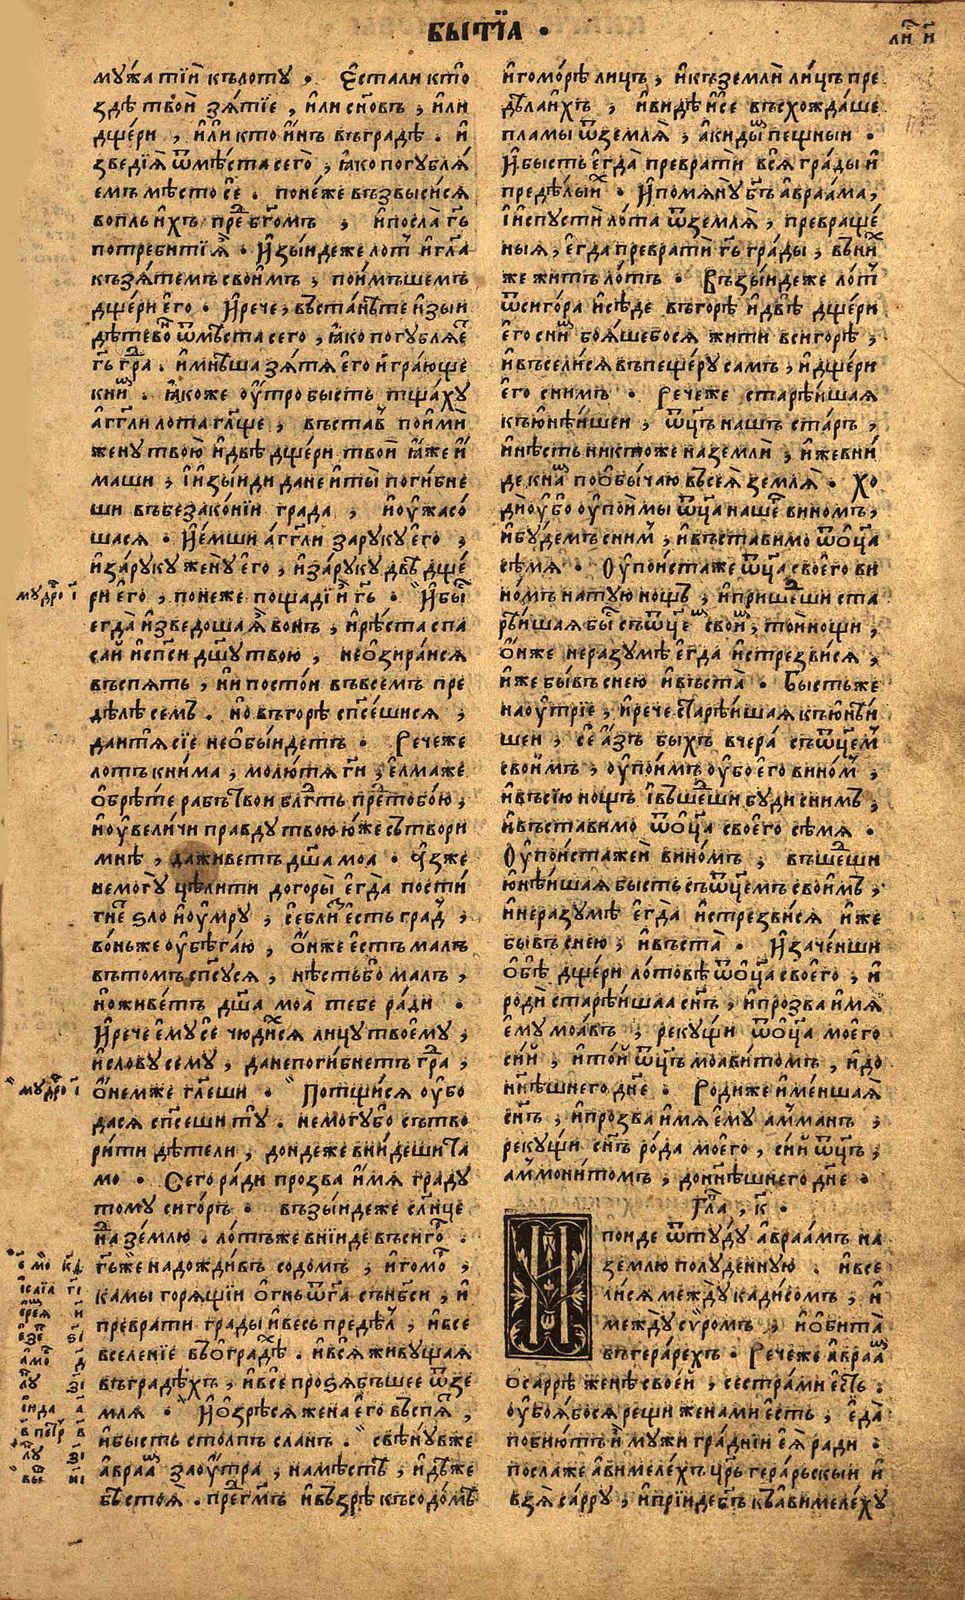 БЫТЇА ·
ли҃ и҃
мужа тїй къ лоту , Єсталикто
здѣ твой зятїе , или сн҃овъ , или
дщери , или кто инъ въградѣ . и
зведїя ѿмѣста сего , ꙗко погубля
емъ мѣсто се . понеже възвысися
вопль ихъ пре бг҃омъ , ипосла гь҃
потребитїѧ . Изыидеже лот и гл҃а
къзятемъ своимъ , поимъшемъ
дщери его . Ирече , въстанѣте изыи
дѣтево ѿмѣста сего , ꙗко погубляе
гь҃ гра . имнѣша зятя его играюще
книⷨ . Ꙗкоже оутро бысть тщаху
агг҃ли лота гл҃ще , въстав поими
жену твою идвѣ дщери твои ꙗже и
маши , їизыиди дане иты погибне
ши въбезаконїи града , иоужасо
шася . Иемши агг҃ли заруку его ,
изаруку жену его , изаруку двѣ дще
ри его , понеже пощадї и гь҃ . Ибы
егда изведоша я вонъ , ирѣста спа
сай испс҃и дш҃у твою , неозирайся
въспять , ни постои въвсемъ пре
дѣле семъ . но въгорѣ спс҃ешися ,
дантя сїе необыидетъ . Речеже
лотъ книма , молютя гн҃и , елмаже
обрѣте рабъ твои блг҃ть пре тобою ,
ноувеличи правду твою юже сътвори
мнѣ , даживетъ дш҃а моа . Ѧзже
немогу цѣлити догоры егда пости
гне ѕло ноумру , себли есть град ,
воньже оубѣгаю , онже естъ малъ
вътомъ спс҃уся , нѣстьбо малъ ,
ноживетъ дш҃а моа тебе ради .
Ирече ему се чюдися лицу твоему ,
исловусему , данепогибнетъ гра ,
онемже гл҃еши . Потщися оубо
дася спс҃еши ту . немогубо сътво
рити дѣтели , дондеже внидеши та
мо . Сего ради прозва имя граду
тому сигоръ . възыидеже сл҃нце
на землю . лотъже внїиде въсиго .
гь҃же надождивъ содомъ , игомо ,
камы горящїи огнь ѿга сънб҃си , и
преврати грады ивесь предѣл , ивсе
вселенїе въоградѣ . ився живущая
въградѣхъ , ивсе прозябъшее ѿзе
мля . Иозрѣся жена его въспя ,
ибысть столпъ сланъ . свѣнувже
авраа заоутра , намѣстѣ , идѣже
бѣстоя . прегм҃ъ ивъзрѣ късодомѣ
мудро і
мудро і
игоморѣ лицъ , икъземли лицъ пре
дѣлаихъ , ивидѣ исе въсхождаше
пламы ѿземля , акидымъ пещныи .
Ибысть егда преврати вся грады и
предѣлыих . Ипомяну бг҃ъ авраама ,
їиспусти лота ѿземля , превраще
ныя , егда преврати гь҃ грады , вних
же жить лотъ . Възыидеже лот
ѿсигора исѣде въгорѣ идвѣ дщери
его сним бояшебося жити всигорѣ ,
ивъселися въпещеру самъ , идщери
его снимъ . Речеже старѣишая
къюнѣишеи , ѿц҃ъ нашъ старъ ,
инѣсть никтоже наземли , ижевни
де кна пообычаю въсея земля . Хо
дноубо оупоимы ѿц҃а наше виномъ ,
ибудемъ сним , ивъставимо ѿѡц҃а
сѣмя . Оупоистаже ѿц҃а своего ви
номъ натую нощь , ипришеши ста
рѣишая бы съѿц҃е свои , тоинощи ,
онже неразумѣ егда истрезвися ,
иже бывъ снею ивъста . Быстьже
наоутрїе , ирече старѣишая къюнѣи
шеи , се азъ быхъ вчера съѿц҃ем
своимъ , оупоимъ оубо его вином ,
ивъсїю нощь їв̾шеши буди снимъ ,
ивъставимо ѿѡц҃а своего сѣмя .
Оупоистажеи виномъ , въшеши
юнѣишая бысть съѿц҃емъ своимъ ,
инеразумѣ егда истрезвися иже
бывъ снею , ивъста . Изаченши
обѣ дщери лотовѣ ѿѡц҃а своего , и
роди старѣишаа сн҃ъ , ипрозва имя
ему моавъ , рекущи ѿѡц҃а моего
сий , итой ѿц҃ъ моавитомъ , идо
нн҃ѣшнего дн҃е . Родиже именшая
сн҃ъ , ипрозва имя ему амманъ ,
рекущи сн҃ъ рода моего , сий ѿц҃ъ ,
аммонитомъ , доннѣшнего дн҃е .
Гла , к .
И
поиде ѿтуду авраамъ на
землю полуденную . ивсе
лися между кадисомъ , и
между суромъ , иобита
въгерарехъ . Речеже авраам
осаррѣ женѣ своей , сестрами есть .
оубоябося рещи женами есть , еда
побиютъ и мужи граднїи ея ради .
послаже авимелехъ цр҃ь герарьскыи и
взя сарру , ипрїидебг҃ъ къавимелеху